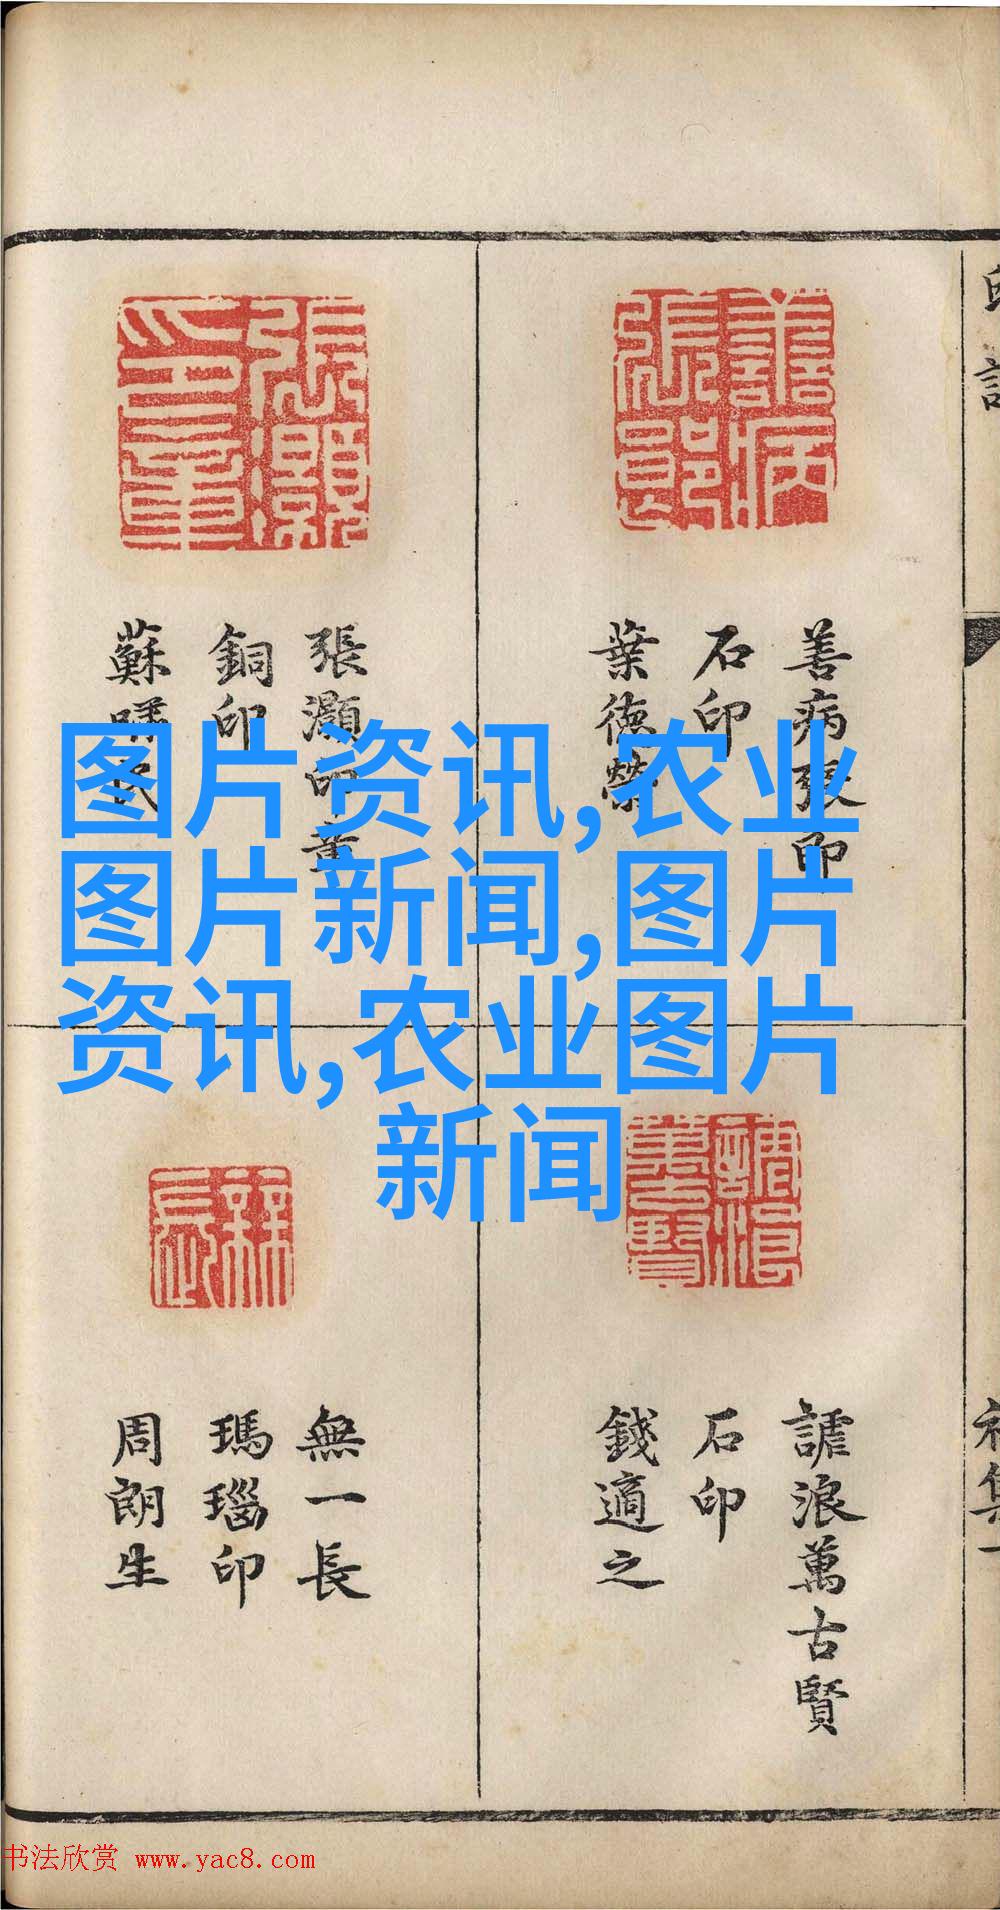 善病張郎
石印
葉德榮
張灝印章
銅印
蘇
謔浪萬古賢
石印
錢適之
無一長
瑪瑙印
周朗生
图片资讯,农业
图片新闻,图片
资讯,农业图片
新闻
初集一
书法欣赏 www.yac8.com